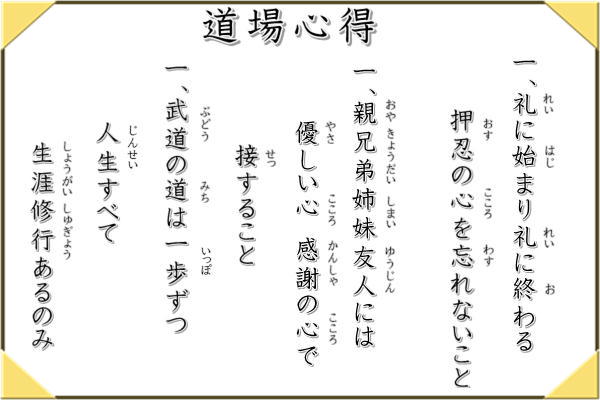 道場心得
一、礼に始まり礼に終わる
押忍の心を忘れないこと
一、親兄弟姉妹友人には
優しい心 感謝の心で
接すること
一、武道の道は一歩ずつ
人生すべて
生涯修行あるのみ